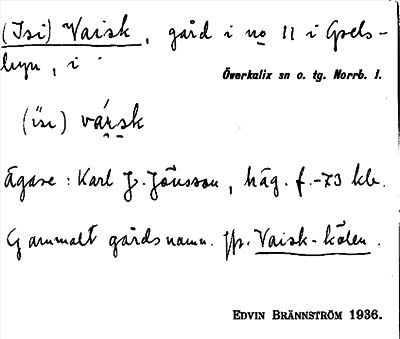 (Isi) Vaisk, gård i no 11 i Grels-
byn, i
Överkalix sn o. tg. Norrb. l.
(ɩ̈sɩ) vársk
Ägare: Karl J. Jönsson, häg. f. -73 kb.
Gammalt gårdsnamn. Jfr. Vaisk-kölen.
EDVIN BRÄNNSTRÖM 1936.